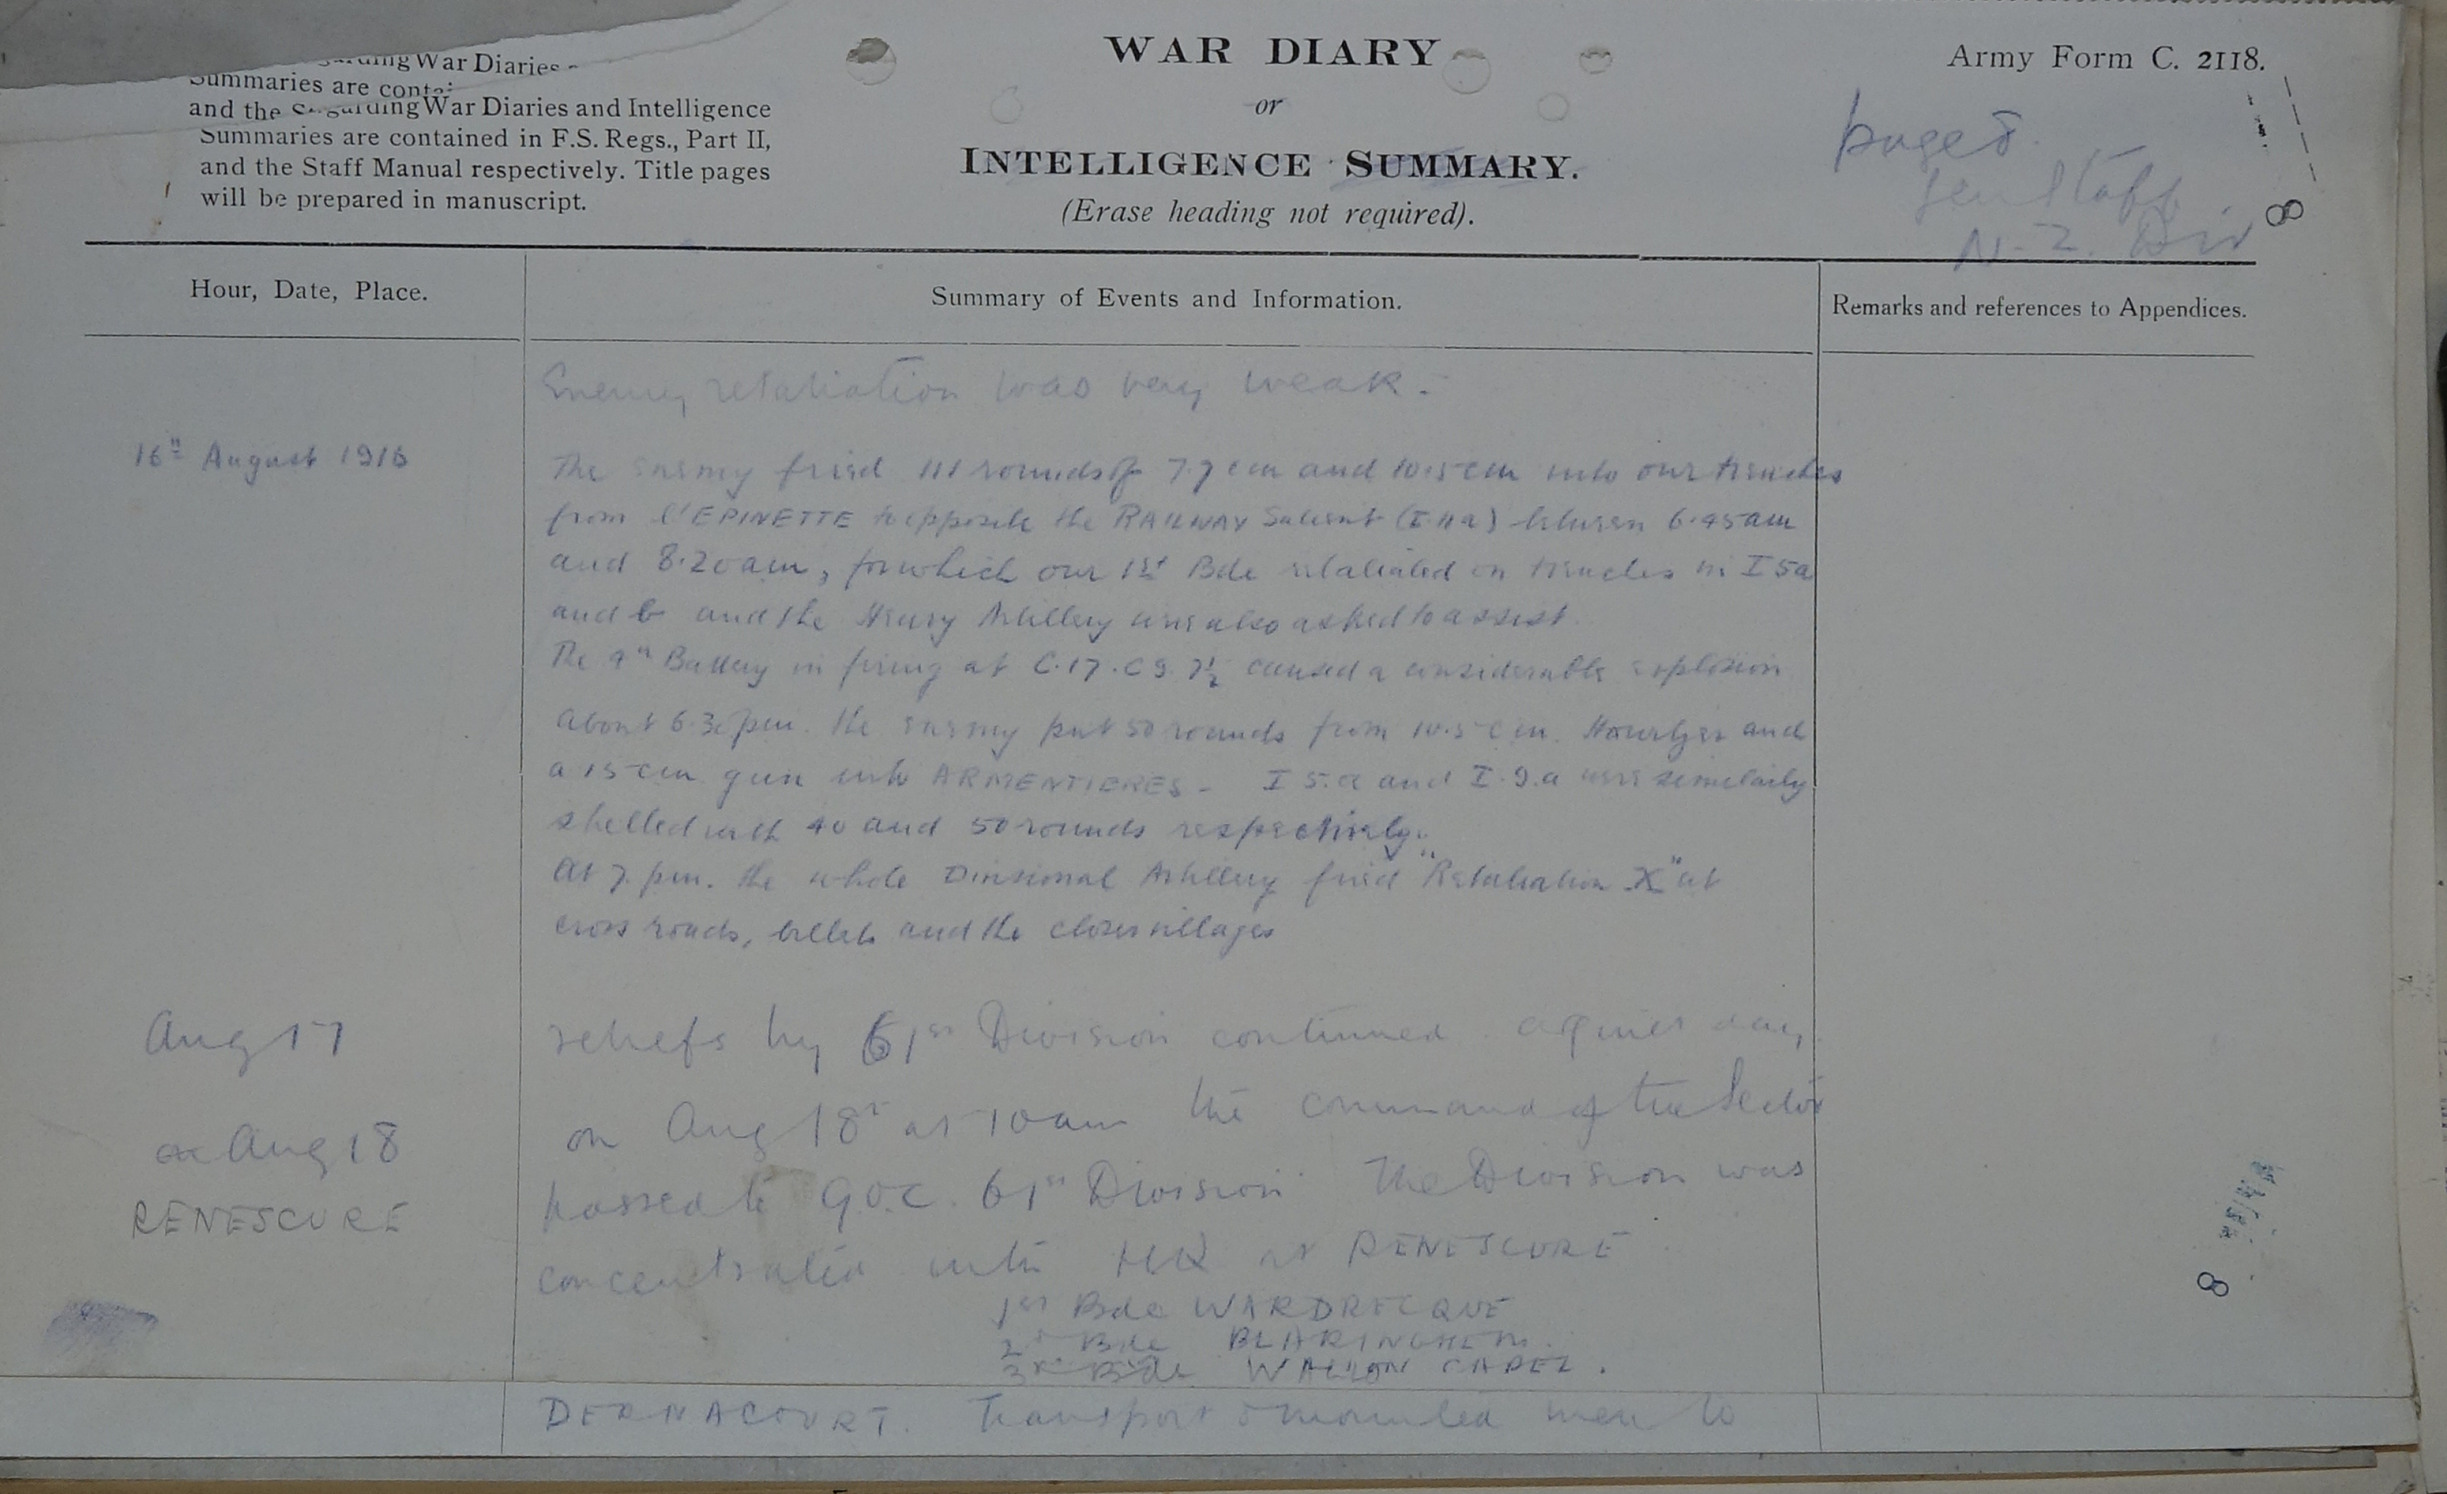 WAR DIARY
or
INTELLIGENCE SUMMARY.
(Erase heading not required).
Army Form C. 2118.
page 8.
Gen Staff
N.Z. Div
8
War Diaries
Summaries are
and the
War Diaries and Intelligence
Summaries are contained in F.S. Regs., Part II,
and the Staff Manual respectively. Title pages
will be prepared in manuscript.
Hour, Date, Place.
Summary of Events and Information.
Remarks and references to Appendices.
Enemy retaliation was very weak.
16th August 1916
The enemy fired 111 rounds of 7.7 cm and 10.5 cm into our trenches
from l'EPINETTE to opposite the RAILWAY Salient (I.11a) between 6.45 am
and 8.20 am, for which our 1st Bde retaliated on trenches in I 5a
and b and the Heavy Artillery were also asked to assist.
The 9th Battery in firing at C.17.c 9.7½ caused a considerable explosion
about 6.30 pm. the enemy put 50 rounds from 10.5 cm. Howitzer and
a 15 cm gun into ARMENTIERES - I 5.a and I.9.a were similarly
shelled with 40 and 50 rounds respectively.
At 7. pm. the whole Divisional Artillery fired "Retaliation X" at
cross roads, billets and the closer villages
Aug 17
reliefs by 61st Division continued. a quiet day.
Aug 18
RENESCURE
on Aug 18th at 10 am the command of the Sector
passed to G.O.C. 61st Division. The Division was
concentrated with HQ at RENESCURE.
1st Bde WARDRECQUE
2d Bde BLARINGHEM.
3rd Bde WALLON CAPEL.
8
DERNACOURT. Transport & mounted men to